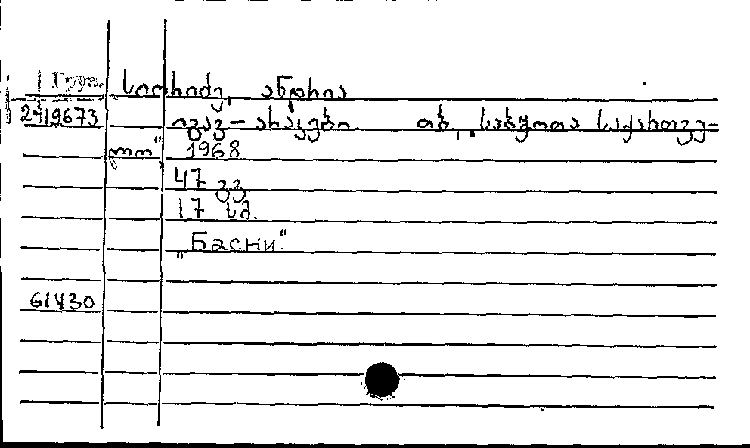 1 Груз. სიორიძე, ანდრია
2419673 იგავ-არაკები თბ, „საბჭოთა საქართვე-
ლო“, 1968
47 გვ
17 სმ.
„Басни“
61430